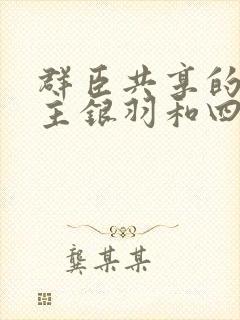 群臣共享的
王银羽和四
龚某某